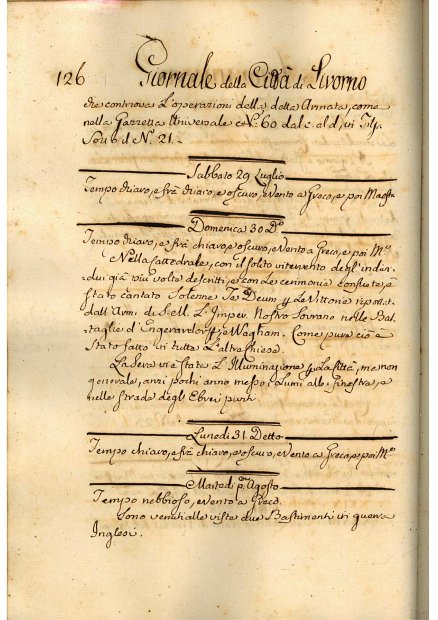 126 Giornale della Città di Livorno
che controva L'operazioni della detta Armata, come
nella Gazzetta Universale N.º 60 dal
Sott. il Nº. 21.
Sabbato 29 Luglio
Tempo chiaro, e frà chiaro, e oscuro, e Vento a Greco, e poi Maest.
Domenica 30 Dº
Tempo chiaro, e frà chiaro, e oscuro, e Vento a Greco, e poi Mº
Nella Cattedrale, con il solito intervento degl'
dui già più volte descritti, e con le cerimonie consuete, è
stato cantato Solenne Te Deum, p Le Vittorie riportat.
dall'Armi di S. M. L'Imper. Nostro Sovrano nelle Bat-
taglie d' Engerardorff, e Wagham. Come pure ciò è
stato fatto in tutte L'altre Chiese.
La sera vi è stata L'Illuminazione p La Città, ma non
generale, anzi pochi anno messo i Lumi alle finestre, e
nelle strade degli Ebrei punti.
Lunedì 31. Detto
Tempo chiaro, e frà chiaro, e oscuro, e Vento a Greco, e poi Mº
Martedì pº Agosto
Tempo nebbioso, e Vento a Greco.
Sono venuti alle viste due Bastimenti di guerra
Inglesi.